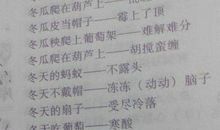 冬瓜爬在葫芦上——
冬瓜皮当帽子——霉上了顶
冬瓜秧爬上葡萄架——难解难分
冬瓜爬在葫芦上——胡搅蛮缠
冬天的蚂蚁——不露头
冬天不戴帽——冻冻（动动）脑子
冬天的扇子——受尽冷落
冬天吃葡萄——寒酸